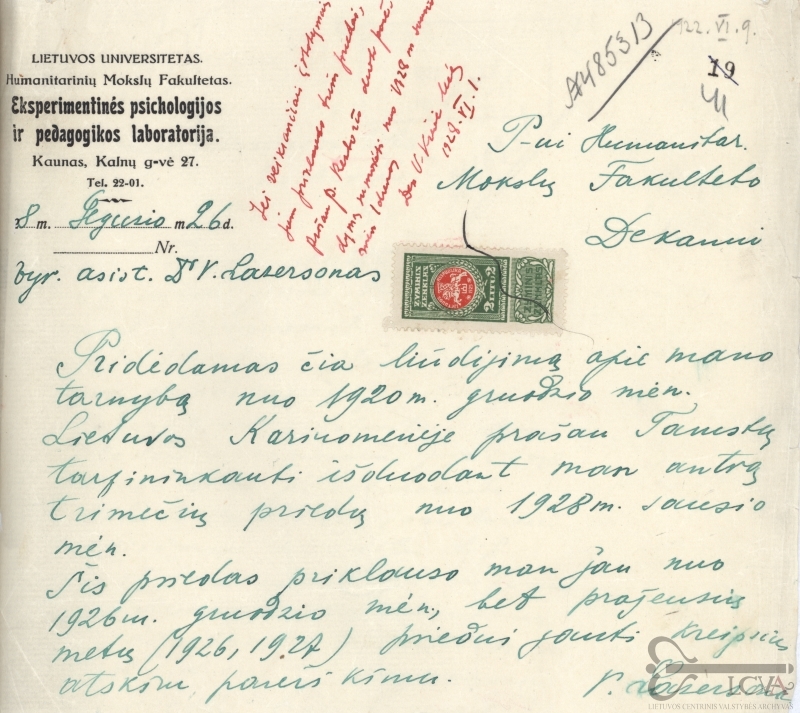 LIETUVOS UNIVERSITETAS.
Humanitarinių Mokslų Fakultetas.
Eksperimentinės psichologijos
ir pedagogikos laboratorija.
Kaunas, Kalnų g-vė 27.
Tel. 22-01.
28 m. Gegužio m. 26 d.
Nr.
vyr. asist. Dr V. Lazersonas
Jei veikiančiai įstatymai
prašau p. Rektorių
nuo 1928 m
Dek. V. Krėvė
1928.VI.1.
A485313
922. VI. 9.
19
41
P-ui Humanitar.
Mokslų Fakulteto
Dekanui
ŽYMINIS
ŽENKLIS
2 LITU 2
Pridėdamas čia liūdijimą apie mano
tarnybą nuo 1920 m. gruodžio mėn.
Lietuvos Kariuomenėje prašau Tamstų
tarpininkauti išduodant man antrą
trimečių priedų nuo 1928 m. sausio
mėn.
Šis priedas priklauso man jau nuo
1926 m. gruodžio mėn., bet praėjusių
metų (1926, 1927) priedui gauti kreipsius
atskiru pareiškimu.
V. Lazersonas
LCVA
LIETUVOS CENTRINIS VALSTYBĖS ARCHYVAS